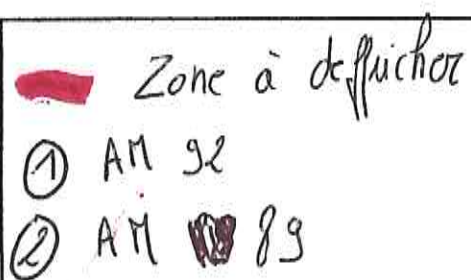 Zone à deffricher
① AM 92
② AM 89